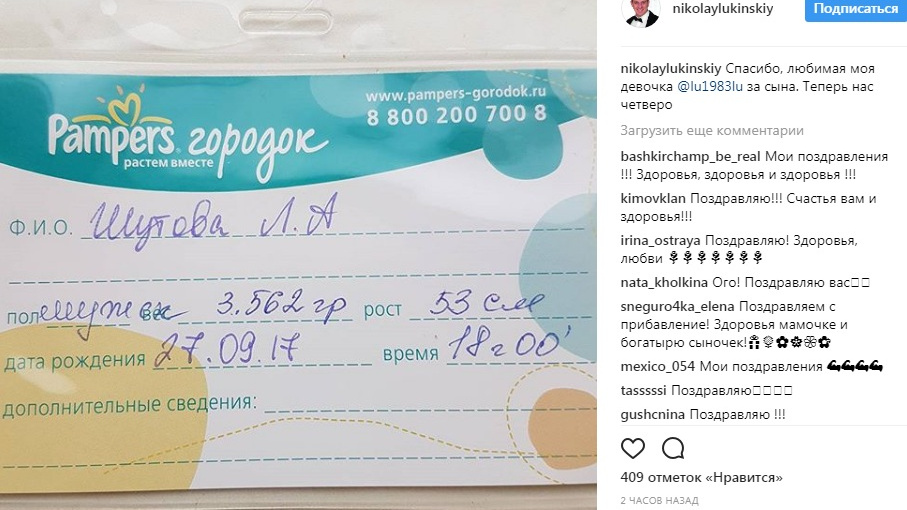 www.pampers-gorodok.ru
8 800 200 700 8
Pampers городок
растем вместе
Ф.И.О. Шутова Л. А
пол мужск вес 3.562 гр рост 53 см
дата рождения 27.09.17 время 18 ч 00'
дополнительные сведения:
nikolaylukinskiy Подписаться
nikolaylukinskiy Спасибо, любимая моя
девочка @lu1983lu за сына. Теперь нас
четверо
Загрузить еще комментарии
bashkirchamp_be_real Мои поздравления
!!! Здоровья, здоровья и здоровья !!!
kimovklan Поздравляю!!! Счастья вам и
здоровья!!!
irina_ostraya Поздравляю! Здоровья,
любви
nata_kholkina Ого! Поздравляю вас
sneguro4ka_elena Поздравляем с
прибавление! Здоровья мамочке и
богатырю сыночек!
mexico_054 Мои поздравления
tasssssi Поздравляю
gushcnina Поздравляю !!!
409 отметок «Нравится»
2 ЧАСОВ НАЗАД